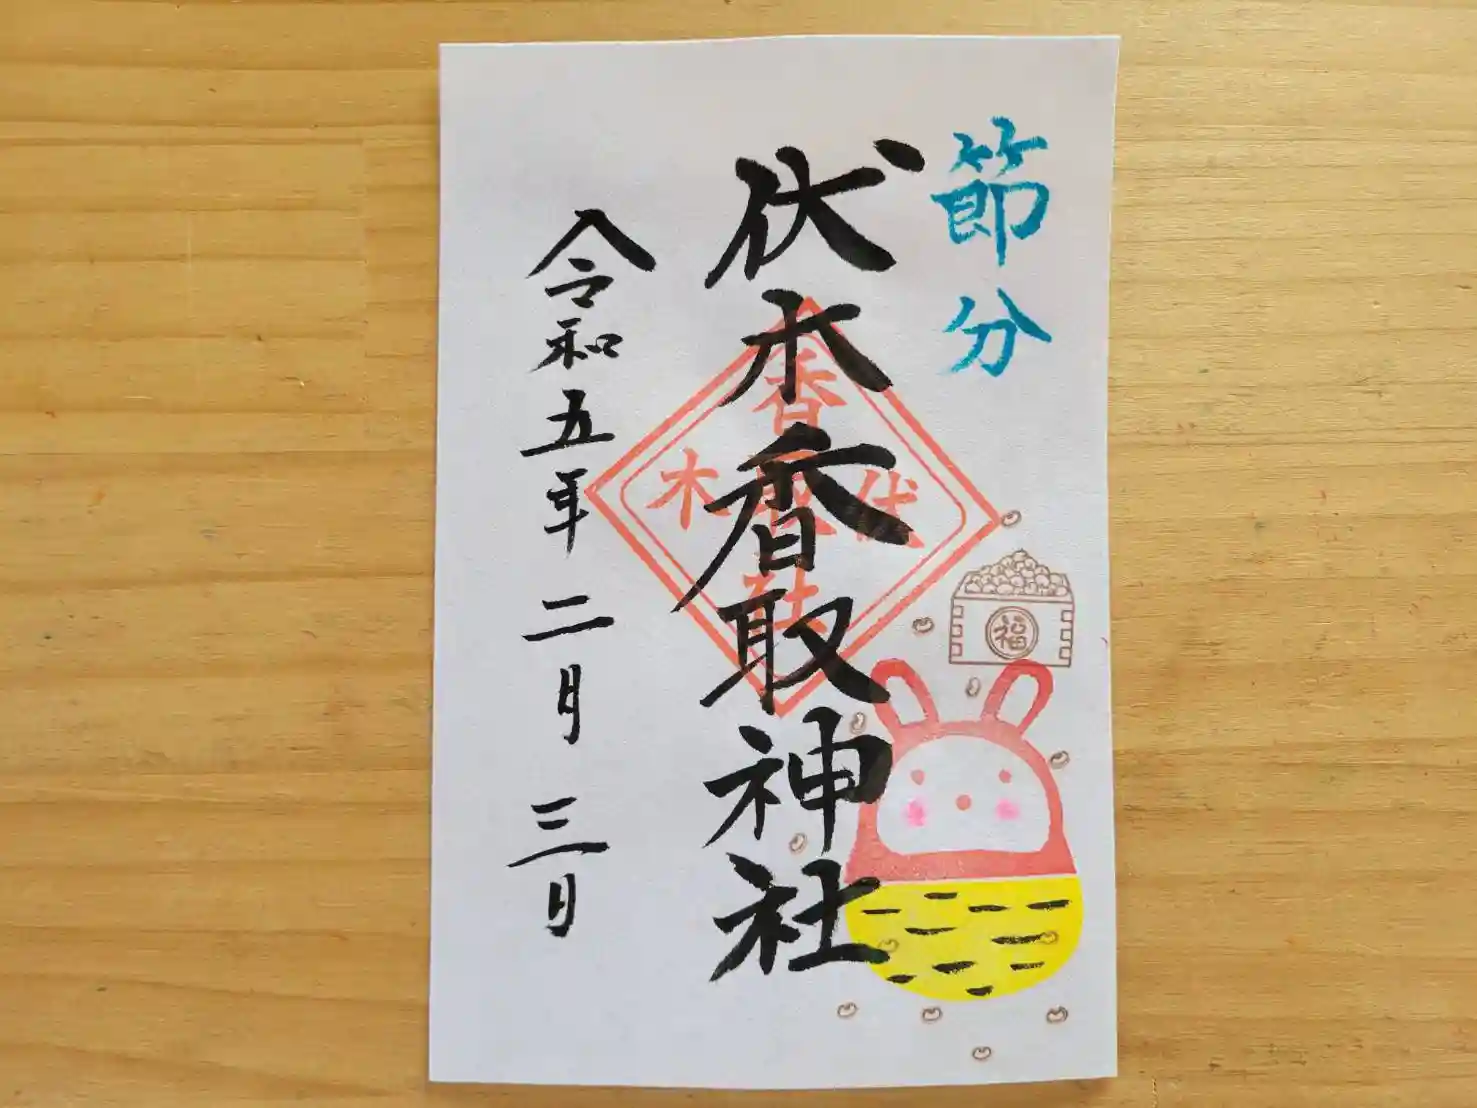 節分
伏木香取神社
令和五年二月三日
伏
木
香
社
福